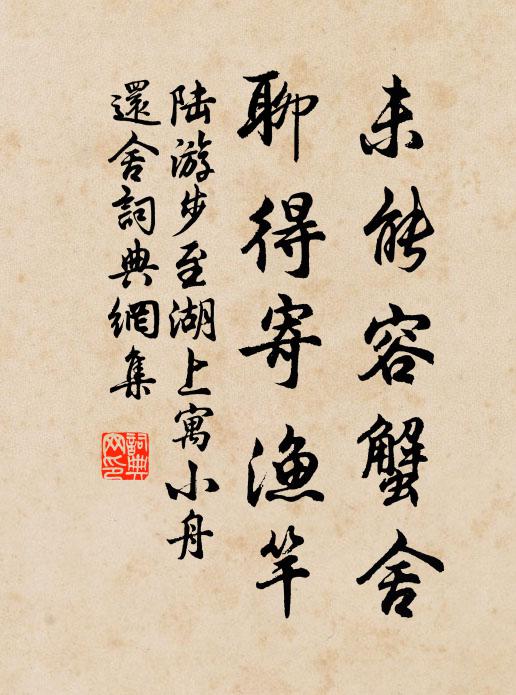 未能容蟹舍
聊得寄漁竿
陆游步至湖上寓小舟
還舍詞典網集
詞典
网印